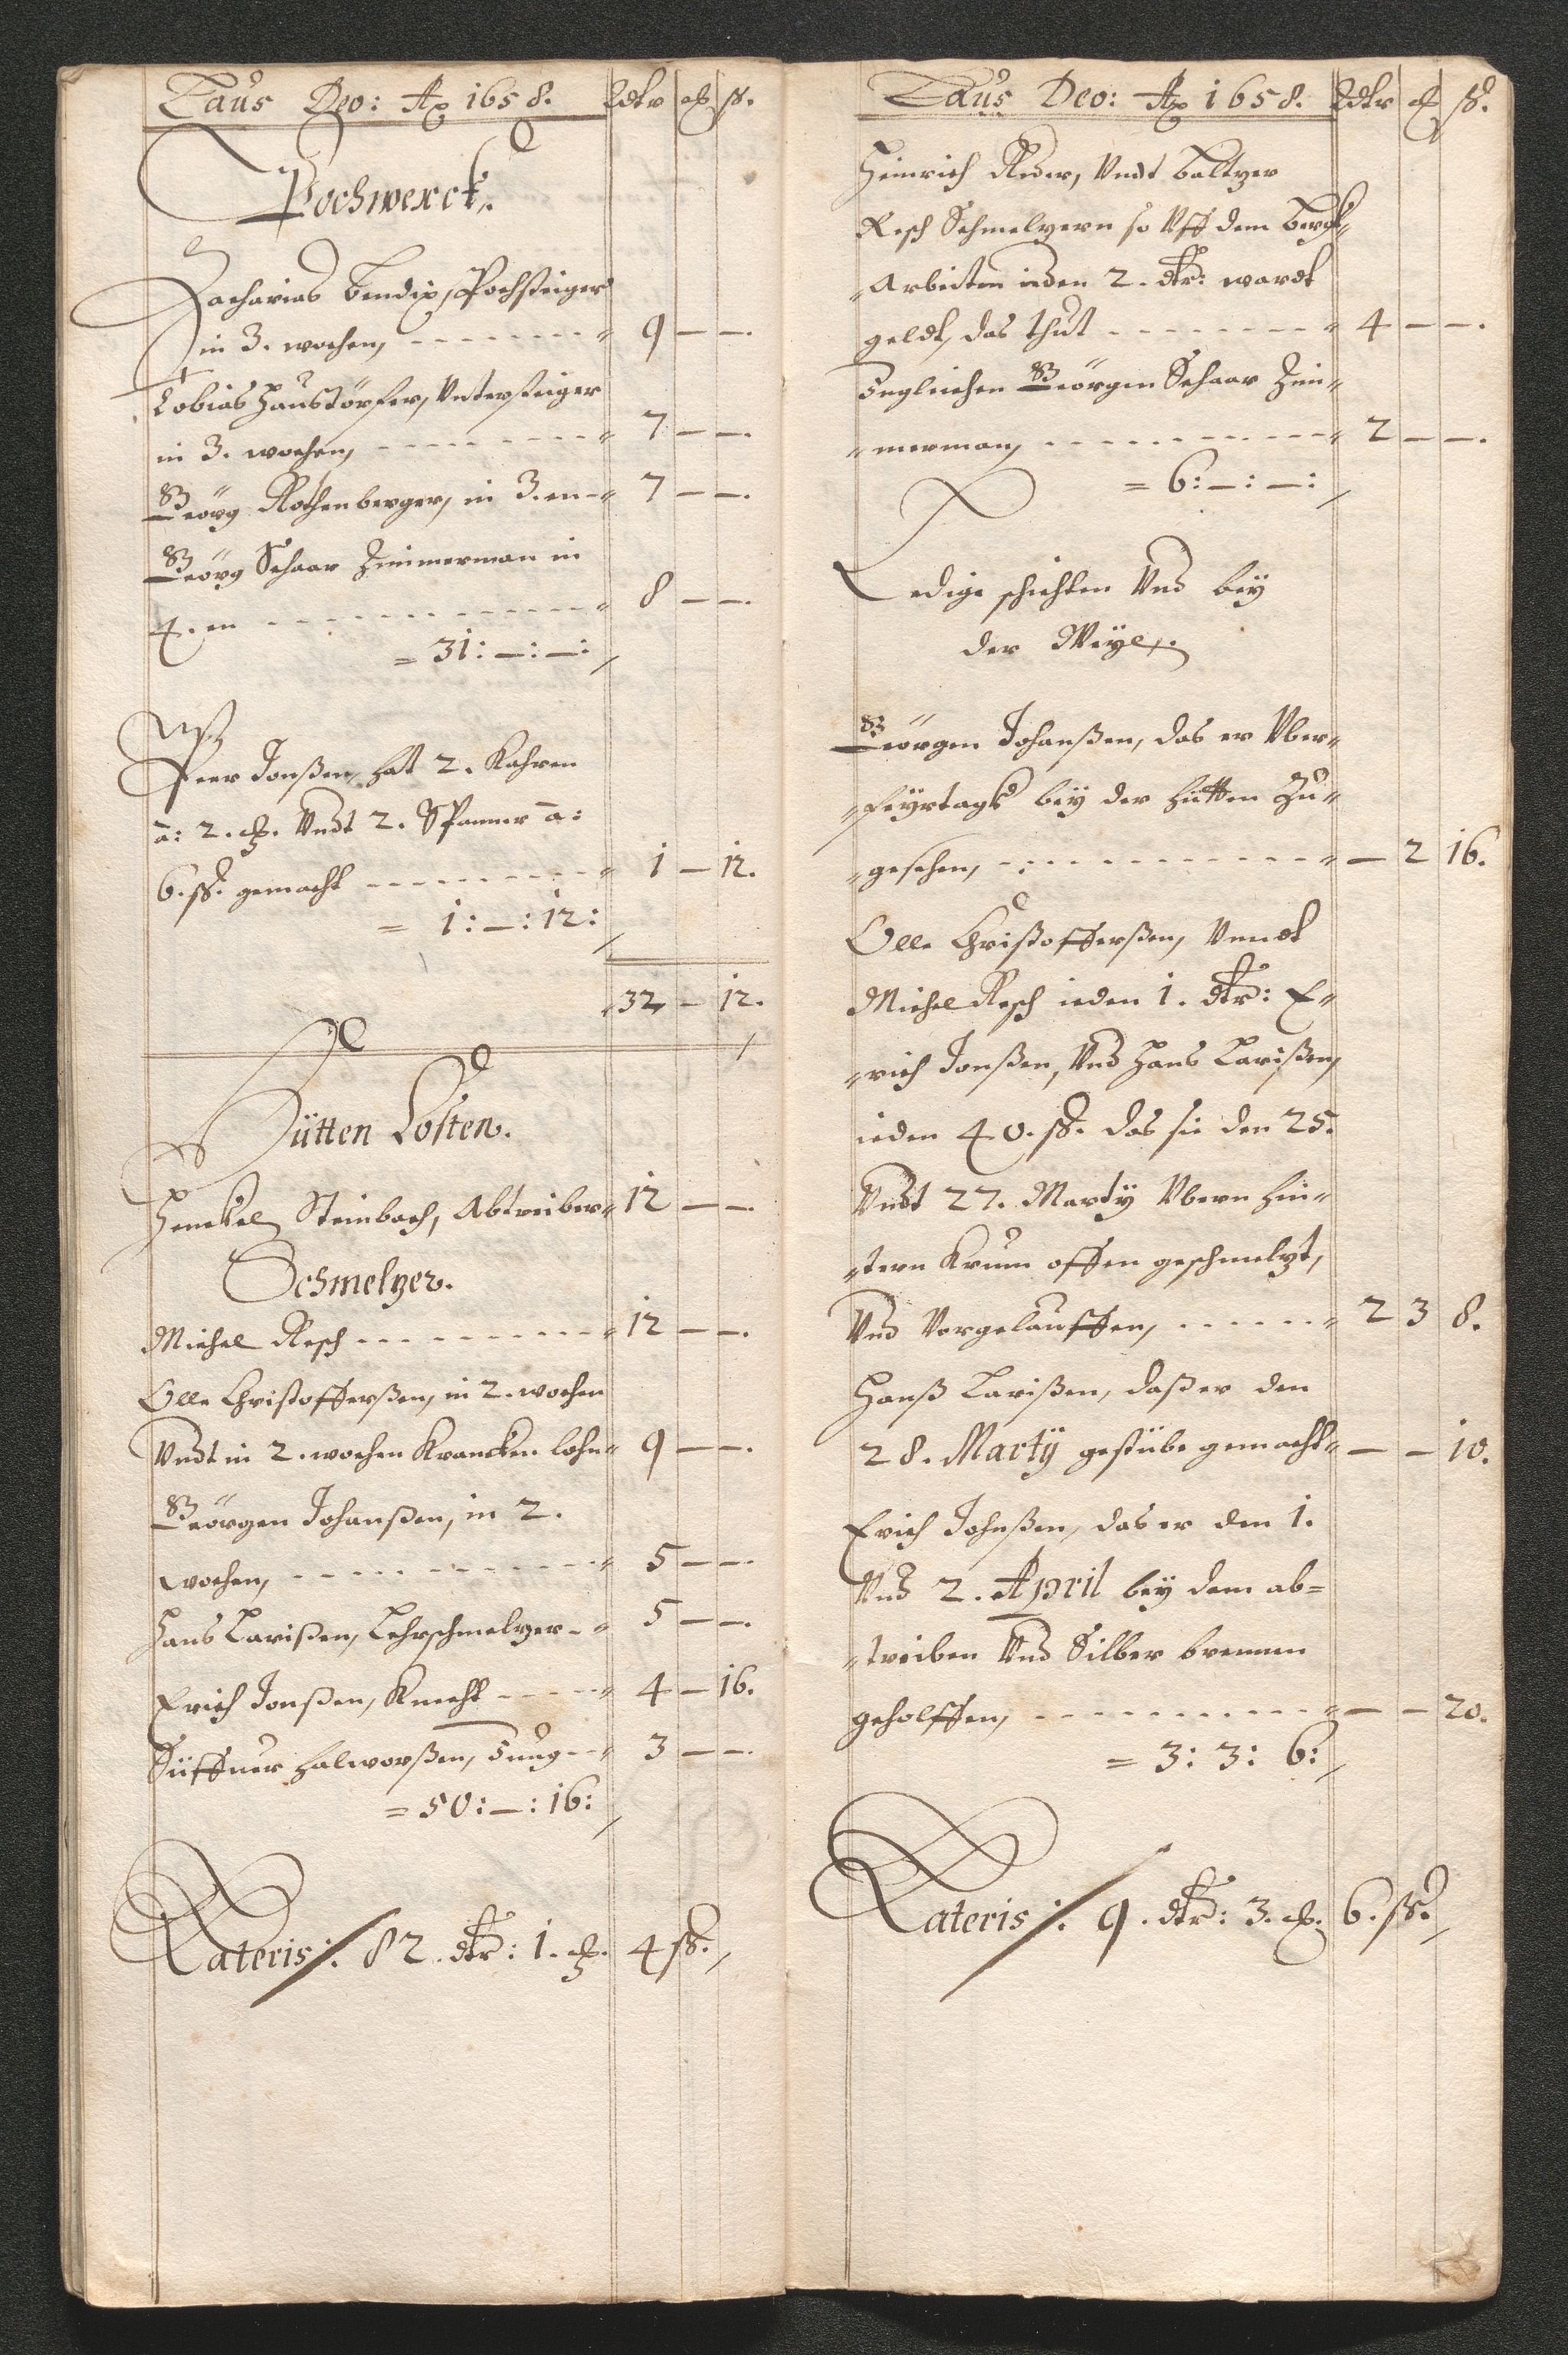 Laus Deo: Ao 1658. Rdlr ß.
Pochwerck.
Zacharias Bendix, Pochsteiger
in 3. wochen, 9 — —.
Tobias Haustörfer, Vntersteiger
in 3. wochen, 7 — —.
Georg Rothenberger, in 3. en 7 — —.
Georg Schaar Zimmerman in
4. en 8 — —.
= 31: — : — :
Peer Jonßen, hat 2. Kahren
à: 2. Vndt 2. Spanner à:
6. ß. gemacht 1 — 12.
= 1: — : 12:
32 — 12.
Hütten Costen.
Henckel Steinbach, Abtreiber 12 — —.
Schmelzer.
Michel Resch 12 — —.
Olle Christofferßen, in 2. wochen
Vndt in 2. wochen Krancken lohn 9 — —.
Georgen Johanßen, in 2.
wochen, 5 — —.
Hans Larißen, Lehrschmelzer 5 — —.
Erich Jonßen, Knecht 4 — 16.
Halworßen, Jung 3 — —.
= 50: — : 16:
Lateris :/: 82. dlr: 1. 4 ß.
Laus Deo: Ao 1658. Rdlr ß.
Heinrich Reder, Vndt Baltzer
Resch Schmelzern so Vff dem Bergk
Arbeiten ieden 2. dlr: wardt
geldt, das thut 4 — —.
Jngleichen Georgen Schaar Zim=
merman, 2 — —.
= 6: — : — :
Ledige schichten Vnd bey
der Weyle.
Georgen Johanßen, das er Vber
feyrtags bey der hütten Zu=
gesehen, — 2 16.
Olle Christofferßen, Vnndt
Michel Resch ieden 1. dlr: E=
rich Jonßen, Vnd Hans Larißen,
ieden 40. ß. das sie den 25.
Vndt 27. Marty Vbern hin=
tern Krum offen geschmelzt,
Vnd Vorgelauffen, 2 3 8.
Hanß Larißen, daß er den
28. Martÿ gestübe gemacht — — 10.
Erich Johnßen, das er den 1.
Vnd 2. April bey dem ab=
treiben Vnd Silber brennen
geholffen, — — 20.
= 3: 3: 6:
Lateris :/: 9. dlr: 3. 6. ß.